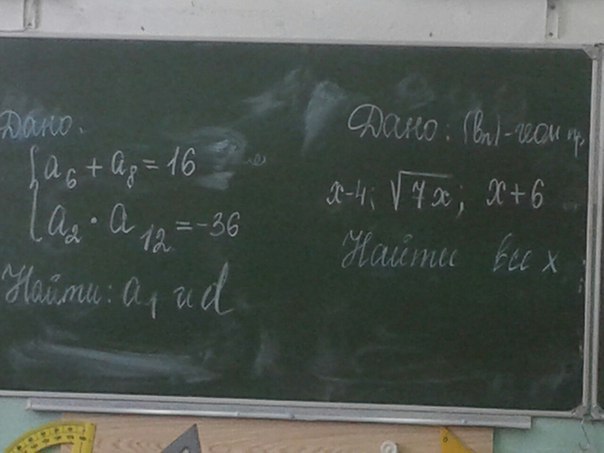 Дано.
a₆ + a₈ = 16
a₂ · a₁₂ = -36
Найти: a₁ и d
Дано: (bₙ) - геом пр.
x-4; √7x; x+6
Найти все x